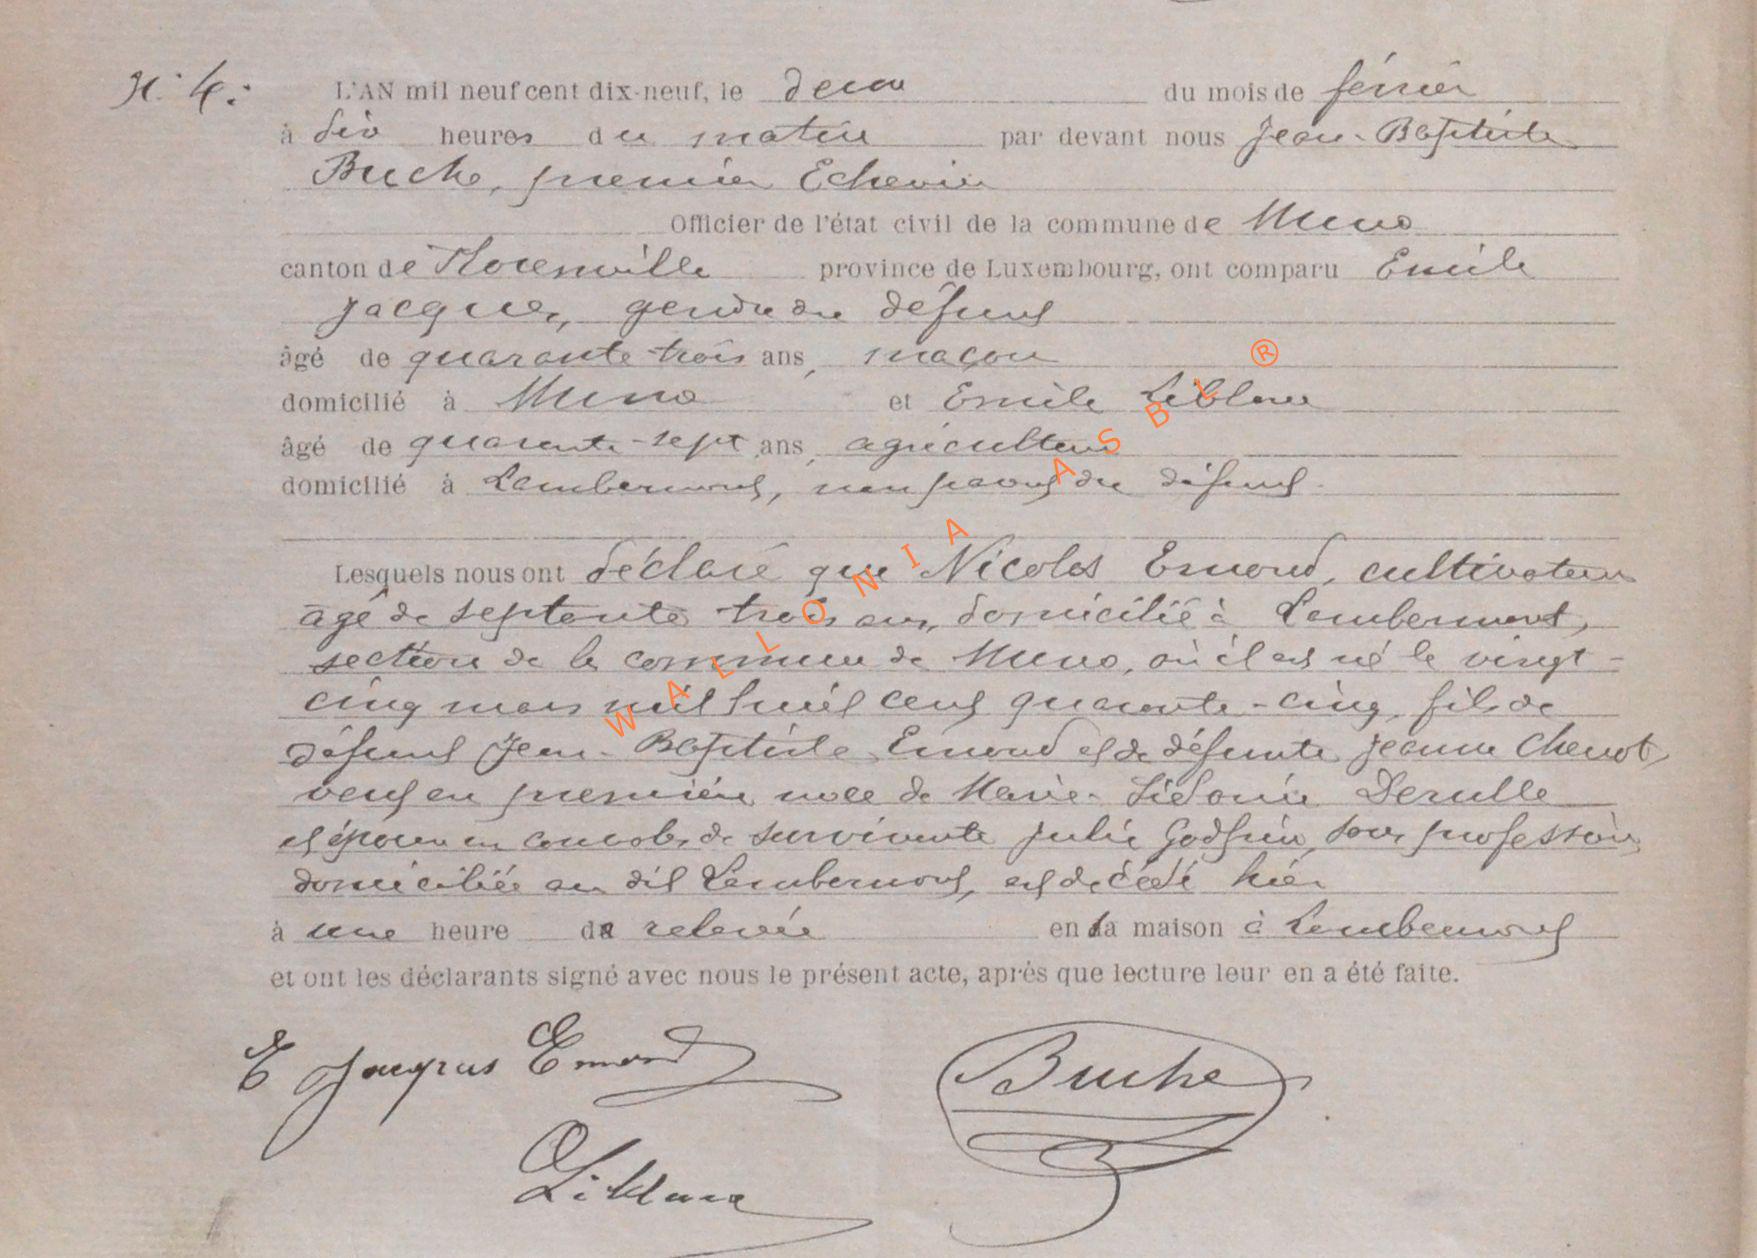 N. 4.
L'AN mil neuf cent dix-neuf, le deux du mois de février
à dix heures du matin par devant nous Jean-Baptiste
Buche, premier Echevin
Officier de l'état civil de la commune de Muno
canton de Florenville province de Luxembourg, ont comparu Emile
Jacques, gendre du défunt
âgé de quarante-trois ans, maçon
domicilié à Muno et Emile Leblanc
âgé de quarante-sept ans, agriculteur
domicilié à Lambermont, non parent du défunt.
Lesquels nous ont déclaré que Nicolas Emond, cultivateur
âgé de septante trois ans, domicilié à Lambermont,
section de la commune de Muno, où il est né le vingt-
cinq mars mil huit cent quarante-cinq, fils de
défunt Jean-Baptiste Emond et de défunte Jeanne Chenot,
veuf en première noce de Marie-Sidonie Derulle
et époux en secondes de survivante Julie Godfrin, sans profession,
domiciliée au dit Lambermont, est décédé hier
à une heure de relevée en la maison à Lambermont
et ont les déclarants signé avec nous le présent acte, après que lecture leur en a été faite.
E Jacques Emond
Buche
Liblanc
WALLONIA ASBL ®